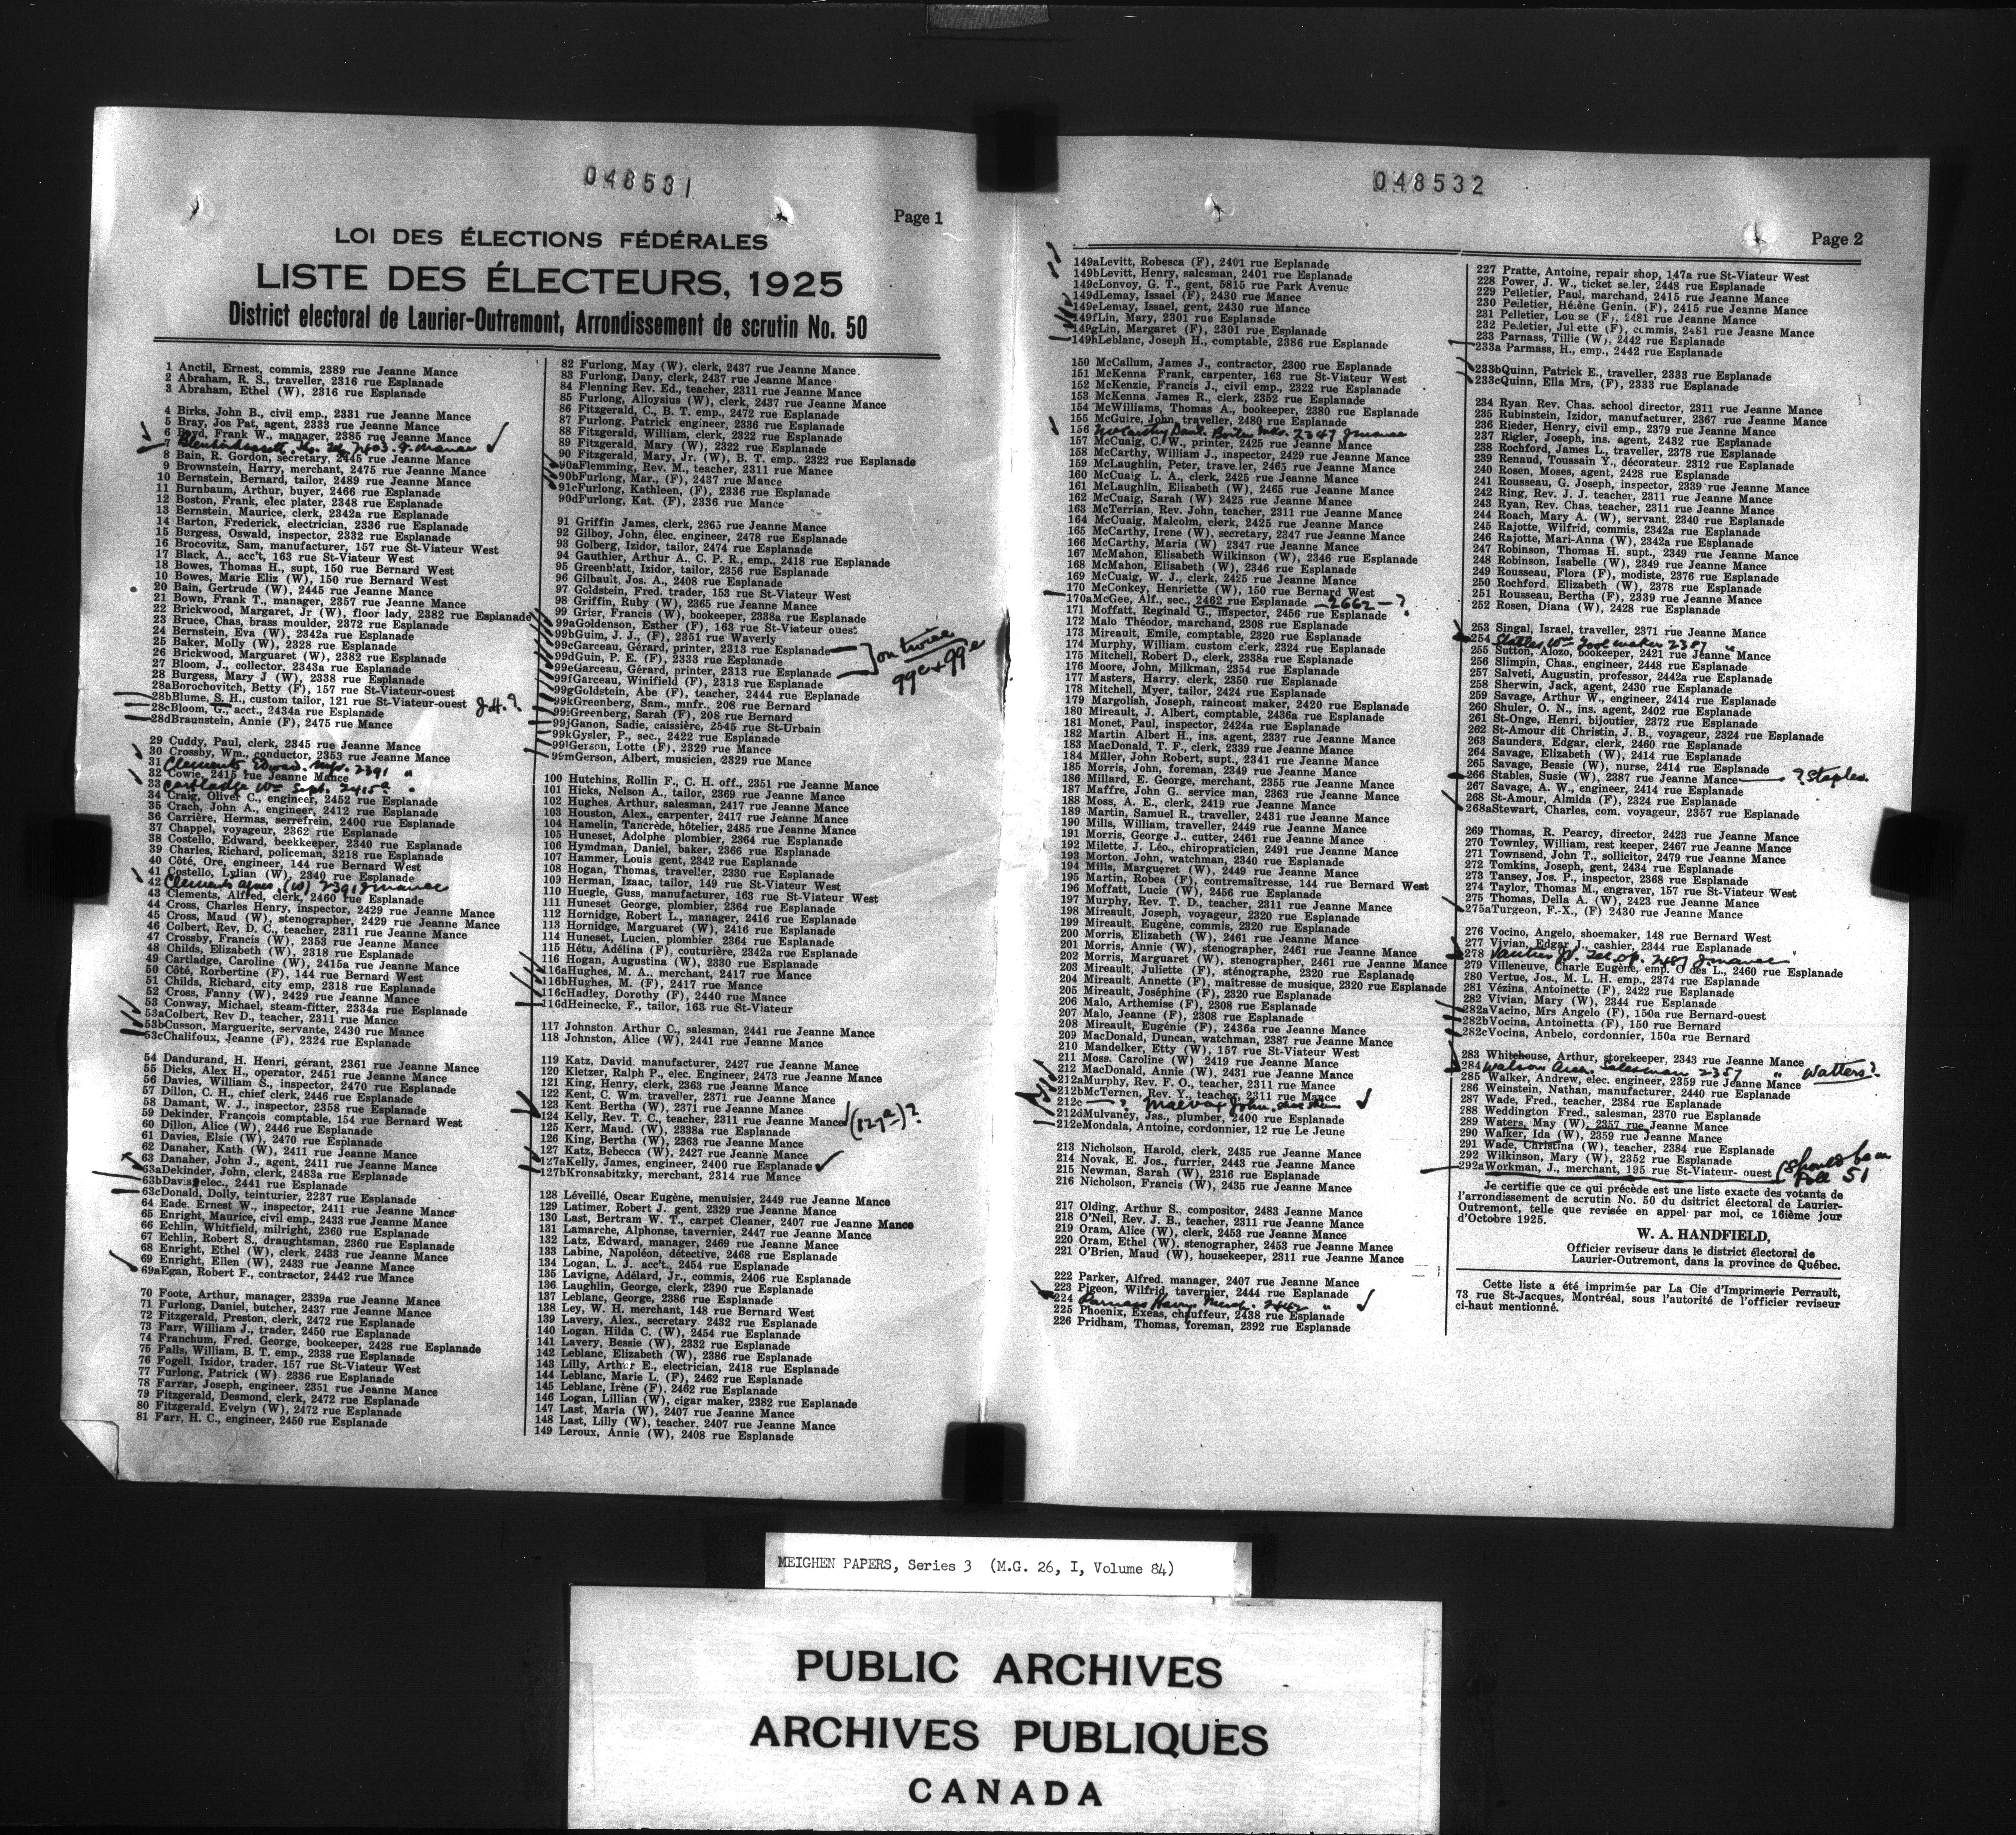 048531
Page 1
LOI DES ÉLECTIONS FÉDÉRALES
LISTE DES ÉLECTEURS, 1925
District electoral de Laurier-Outremont, Arrondissement de scrutin No. 50
1 Anctil, Ernest, commis, 2389 rue Jeanne Mance
2 Abraham, R. S., traveller, 2316 rue Esplanade
3 Abraham, Ethel (W), 2316 rue Esplanade
4 Birks, John B., civil emp., 2331 rue Jeanne Mance
5 Bray, Jos Pat, agent, 2333 rue Jeanne Mance
6 Boyd, Frank W., manager, 2385 rue Jeanne Mance
7
8 Bain, R. Gordon, secretary, 2445 rue Jeanne Mance
9 Brownstein, Harry, merchant, 2475 rue Jeanne Mance
10 Bernstein, Bernard, tailor, 2489 rue Jeanne Mance
11 Burnbaum, Arthur, buyer, 2466 rue Esplanade
12 Boston, Frank, elec plater, 2348 rue Esplanade
13 Bernstein, Maurice, clerk, 2342a rue Esplanade
14 Barton, Frederick, electrician, 2336 rue Esplanade
15 Burgess, Oswald, inspector, 2332 rue Esplanade
16 Brocovitz, Sam, manufacturer, 157 rue St-Viateur West
17 Black, A., acc't, 163 rue St-Viateur West
18 Bowes, Thomas H., supt, 150 rue Bernard West
10 Bowes, Marie Eliz (W), 150 rue Bernard West
20 Bain, Gertrude (W), 2445 rue Jeanne Mance
21 Bown, Frank T., manager, 2357 rue Jeanne Mance
22 Brickwood, Margaret, Jr (W), floor lady, 2382 rue Esplanade
23 Bruce, Chas, brass moulder, 2372 rue Esplanade
24 Bernstein, Eva (W), 2342a rue Esplanade
25 Baker, Molly (W), 2328 rue Esplanade
26 Brickwood, Marguaret (W), 2382 rue Esplanade
27 Bloom, J., collector, 2343a rue Esplanade
28 Burgess, Mary J (W), 2338 rue Esplanade
28a Borochovitch, Betty (F), 157 rue St-Viateur-ouest
28b Blume, S. H., custom tailor, 121 rue St-Viateur-ouest J.H.?
28c Bloom, G., acct., 2434a rue Esplanade
28d Braunstein, Annie (F), 2475 rue Mance
29 Cuddy, Paul, clerk, 2345 rue Jeanne Mance
30 Crossby, Wm., conductor, 2353 rue Jeanne Mance
31 Clements Edward. 2391 "
32 Cowie, 2415 rue Jeanne Mance
33 Cartledge Wm Supt. 2415a "
34 Craig, Oliver C., engineer, 2452 rue Esplanade
35 Crach, John A., engineer, 2412 rue Esplanade
36 Carrière, Hermas, serrefrein, 2400 rue Esplanade
37 Chappel, voyageur, 2362 rue Esplanade
38 Costello, Edward, beekkeeper, 2340 rue Esplanade
39 Charles, Richard, policeman, 3218 rue Esplanade
40 Côté, Ore, engineer, 144 rue Bernard West
41 Costello, Lylian (W), 2340 rue Esplanade
42 Clements Agnes (W) 2391 Jmance
43 Clements, Alfred, clerk, 2460 rue Esplanade
44 Cross, Charles Henry, inspector, 2429 rue Jeanne Mance
45 Cross, Maud (W), stenographer, 2429 rue Jeanne Mance
46 Colbert, Rev, D. C., teacher, 2311 rue Jeanne Mance
47 Crossby, Francis (W), 2353 rue Jeanne Mance
48 Childs, Elizabeth (W), 2318 rue Esplanade
49 Cartladge, Caroline (W), 2415a rue Jeanne Mance
50 Côté, Rorbertine (F), 144 rue Bernard West
51 Childs, Richard, city emp, 2318 rue Esplanade
52 Cross, Fanny (W), 2429 rue Jeanne Mance
53 Conway, Michael, steam-fitter, 2334a rue Esplanade
53a Colbert, Rev D., teacher, 2311 rue Mance
53b Cusson, Marguerite, servante, 2430 rue Mance
53c Chalifoux, Jeanne (F), 2324 rue Esplanade
54 Dandurand, H. Henri, gérant, 2361 rue Jeanne Mance
55 Dicks, Alex H., operator, 2451 rue Jeanne Mance
56 Davies, William S., inspector, 2470 rue Esplanade
57 Dillon, C. H., chief clerk, 2446 rue Esplanade
58 Damant, W. J., inspector, 2358 rue Esplanade
59 Dekinder, François comptable, 154 rue Bernard West
60 Dillon, Alice (W), 2446 rue Esplanade
61 Davies, Elsie (W), 2470 rue Esplanade
62 Danaher, Kath (W), 2411 rue Jeanne Mance
63 Danaher, John J., agent, 2411 rue Jeanne Mance
63a Dekinder, John, clerk, 2483a rue Esplanade
63b Davis, elec., 2441 rue Esplanade
63c Donald, Dolly, teinturier, 2237 rue Esplanade
64 Eade, Ernest W., inspector, 2411 rue Jeanne Mance
65 Enright, Maurice, civil emp., 2433 rue Jeanne Mance
66 Echlin, Whitfield, milright, 2360 rue Esplanade
67 Echlin, Robert S., draughtsman, 2360 rue Esplanade
68 Enright, Ethel (W), clerk, 2433 rue Jeanne Mance
69 Enright, Ellen (W), 2433 rue Jeanne Mance
69a Egan, Robert F., contractor, 2442 rue Mance
70 Foote, Arthur, manager, 2339a rue Jeanne Mance
71 Furlong, Daniel, butcher, 2437 rue Jeanne Mance
72 Fitzgerald, Preston, clerk, 2472 rue Esplanade
73 Farr, William J., trader, 2450 rue Esplanade
74 Franchum, Fred. George, bookeeper, 2428 rue Esplanade
75 Falls, William, B. T. emp., 2338 rue Esplanade
76 Fogell, Izidor, trader, 157 rue St-Viateur West
77 Furlong, Patrick (W), 2336 rue Esplanade
78 Farrar, Joseph, engineer, 2351 rue Jeanne Mance
79 Fitzgerald, Desmond, clerk, 2472 rue Esplanade
80 Fitzgerald, Evelyn (W), 2472 rue Esplanade
81 Farr, H. C., engineer, 2450 rue Esplanade
82 Furlong, May (W), clerk, 2437 rue Jeanne Mance
83 Furlong, Dany, clerk, 2437 rue Jeanne Mance
84 Flenning Rev. Ed., teacher, 2311 rue Jeanne Mance
85 Furlong, Alloysius (W), clerk, 2437 rue Jeanne Mance
86 Fitzgerald, C., B. T. emp., 2472 rue Esplanade
87 Furlong, Patrick engineer, 2336 rue Esplanade
88 Fitzgerald, William, clerk, 2322 rue Esplanade
89 Fitzgerald, Mary (W), 2322 rue Esplanade
90 Fitzgerald, Mary, Jr. (W), B. T. emp., 2322 rue Esplanade
90a Flemming, Rev. M., teacher, 2311 rue Mance
90b Furlong, Mar., (F), 2437 rue Mance
91c Furlong, Kathleen, (F), 2336 rue Esplanade
90d Furlong, Kat. (F), 2336 rue Mance
91 Griffin James, clerk, 2365 rue Jeanne Mance
92 Gilboy, John, élec. engineer, 2478 rue Esplanade
93 Golberg, Izidor, tailor, 2474 rue Esplanade
94 Gauthier, Arthur A., C. P. R., emp., 2418 rue Esplanade
95 Greenblatt, Izidor, tailor, 2356 rue Esplanade
96 Gilbault, Jos. A., 2408 rue Esplanade
97 Goldstein, Fred. trader, 153 rue St-Viateur West
98 Griffin, Ruby (W), 2365 rue Jeanne Mance
99 Grier, Francis (W), bookeeper, 2338a rue Esplanade
99a Goldenson, Esther (F), 163 rue St-Viateur ouest
99b Guim, J. J., (F), 2351 rue Waverly
99c Garceau, Gérard, printer, 2313 rue Esplanade
99d Guin, P. E. (F), 2333 rue Esplanade
99e Garceau, Gérard, printer, 2313 rue Esplanade
on twice
99c + 99e
99f Garceau, Winifield (F), 2313 rue Esplanade
99g Goldstein, Abe (F), teacher, 2444 rue Esplanade
99k Greenberg, Sam., mnfr., 208 rue Bernard
99i Greenberg, Sarah (F), 208 rue Bernard
99j Ganon, Sadie, caissière, 2545 rue St-Urbain
99k Gysler, P., sec., 2422 rue Esplanade
99l Gerson, Lotte (F). 2329 rue Mance
99m Gerson, Albert, musicien, 2329 rue Mance
100 Hutchins, Rollin F., C. H. off., 2351 rue Jeanne Mance
101 Hicks, Nelson A., tailor, 2369 rue Jeanne Mance
102 Hughes, Arthur, salesman, 2417 rue Jeanne Mance
103 Houston, Alex., carpenter, 2417 rue Jeanne Mance
104 Hamelin, Tancrède, hôtelier, 2485 rue Jeanne Mance
105 Huneset, Adolphe plombier, 2364 rue Esplanade
106 Hymdman, Daniel, baker, 2366 rue Esplanade
107 Hammer, Louis gent, 2342 rue Esplanade
108 Hogan, Thomas, traveller, 2330 rue Esplanade
109 Herman, Izaac, tailor, 149 rue St-Viateur West
110 Huegle, Guss, manufacturer, 163 rue St-Viateur West
111 Huneset George, plombier, 2364 rue Esplanade
112 Hornidge, Robert L., manager, 2416 rue Esplanade
113 Hornidge, Marguaret (W), 2416 rue Esplanade
114 Huneset, Lucien, plombier 2364 rue Esplanade
115 Hétu, Adélina (F), couturière, 2342a rue Esplanade
116 Hogan, Augustina (W), 2330 rue Esplanade
116a Hughes, M. A., merchant, 2417 rue Mance
116b Hughes, M. (F), 2417 rue Mance
116c Hadley, Dorothy (F), 2440 rue Mance
116d Heinecke, F., tailor, 163 rue St-Viateur
117 Johnston, Arthur C., salesman, 2441 rue Jeanne Mance
118 Johnston, Alice (W), 2441 rue Jeanne Mance
119 Katz, David, manufacturer, 2427 rue Jeanne Mance
120 Kletzer, Ralph P., elec. Engineer, 2473 rue Jeanne Mance
121 King, Henry, clerk, 2363 rue Jeanne Mance
122 Kent, C. Wm. traveller, 2371 rue Jeanne Mance
123 Kent, Bertha (W), 2371 rue Jeanne Mance
124 Kelly, Rev. T. C., teacher, 2311 rue Jeanne Mance (127a)?
125 Kerr, Maud. (W), 2338a rue Esplanade
126 King, Bertha (W), 2363 rue Jeanne Mance
127 Katz, Bebecca (W), 2427 rue Jeanne Mance
127a Kelly, James, engineer, 2400 rue Esplanade
127b Kronsabitzky, merchant, 2314 rue Mance
128 Léveillé, Oscar Eugène, menuisier, 2449 rue Jeanne Mance
129 Latimer, Robert J. gent, 2329 rue Jeanne Mance
130 Last, Bertram W. T., carpet Cleaner, 2407 rue Jeanne Mance
131 Lamarche, Alphonse, tavernier, 2447 rue Jeanne Mance
132 Latz, Edward, manager, 2469 rue Jeanne Mance
133 Labine, Napoléon, détective, 2468 rue Esplanade
134 Logan, L. J. acc't., 2454 rue Esplanade
135 Lavigne, Adélard, Jr., commis, 2406 rue Esplanade
136 Laughlin, George, clerk, 2390 rue Esplanade
137 Leblanc, George, 2386 rue Esplanade
138 Ley, W. H. merchant, 148 rue Bernard West
139 Lavery, Alex., secretary 2432 rue Esplanade
140 Logan, Hilda C. (W), 2454 rue Esplanade
141 Lavery, Bessie (W), 2332 rue Esplanade
142 Leblanc, Elizabeth (W), 2386 rue Esplanade
143 Lilly, Arthur E., electrician, 2418 rue Esplanade
144 Leblanc, Marie L. (F), 2462 rue Esplanade
145 Leblanc, Irène (F). 2462 rue Esplanade
146 Logan, Lillian (W), cigar maker, 2382 rue Esplanade
147 Last, Maria (W), 2407 rue Jeanne Mance
148 Last, Lilly (W), teacher, 2407 rue Jeanne Mance
149 Leroux, Annie (W), 2408 rue Esplanade
048532
Page 2
149a Levitt, Robesca (F), 2401 rue Esplanade
149b Levitt, Henry, salesman, 2401 rue Esplanade
149c Lonvoy, G. T., gent, 5815 rue Park Avenue
149d Lemay, Issael (F), 2430 rue Mance
149e Lemay, Issael, gent, 2430 rue Mance
149f Lin, Mary, 2301 rue Esplanade
149g Lin, Margaret (F), 2301 rue Esplanade
149h Leblanc, Joseph H., comptable, 2386 rue Esplanade
150 McCallum, James J., contractor, 2300 rue Esplanade
151 McKenna Frank, carpenter, 163 rue St-Viateur West
152 McKenzie, Francis J., civil emp., 2322 rue Esplanade
153 McKenna, James R., clerk, 2352 rue Esplanade
154 McWilliams, Thomas A., bookeeper, 2380 rue Esplanade
155 McGuire, John, traveller, 2480 rue Esplanade
156 McCarthy Danl. Boiler mkr. 2347 Jmance
157 McCuaig, C. W., printer, 2425 rue Jeanne Mance
158 McCarthy, William J., inspector, 2429 rue Jeanne Mance
159 McLaughlin, Peter, traveller, 2465 rue Jeanne Mance
160 McCuaig L. A., clerk, 2425 rue Jeanne Mance
161 McLaughlin, Elisabeth (W), 2465 rue Jeanne Mance
162 McCuaig, Sarah (W) 2425 rue Jeanne Mance
163 McTerrian, Rev. John, teacher, 2311 rue Jeanne Mance
164 McCuaig, Malcolm, clerk, 2425 rue Jeanne Mance
165 McCarthy, Irene (W), secretary, 2347 rue Jeanne Mance
166 McCarthy, Maria (W) 2347 rue Jeanne Mance
167 McMahon, Elisabeth Wilkinson (W), 2346 rue Esplanade
168 McMahon, Elisabeth (W), 2346 rue Esplanade
169 McCuaig, W. J., clerk, 2425 rue Jeanne Mance
170 McConkey, Henriette (W), 150 rue Bernard West
170a McGee, Alf., sec., 2462 rue Esplanade — 2662 — ?
171 Moffatt, Reginald G., inspector, 2456 rue Esplanade
172 Malo, Théodor, marchand, 2308 rue Esplanade
173 Mireault, Emile, comptable, 2320 rue Esplanade
174 Murphy, William. custom clerk, 2324 rue Esplanade
175 Mitchell, Robert D., clerk, 2338a rue Esplanade
176 Moore, John, Milkman, 2354 rue Esplanade
177 Masters, Harry, clerk, 2350 rue Esplanade
178 Mitchell, Myer, tailor, 2424 rue Esplanade
179 Margolish, Joseph, raincoat maker, 2420 rue Esplanade
180 Mireault, J. Albert, comptable, 2436a rue Esplanade
181 Monet, Paul, inspector, 2424a rue Esplanade
182 Martin Albert H., ins. agent, 2337 rue Jeanne Mance
183 MacDonald, T. F., clerk, 2339 rue Jeanne Mance
184 Miller, John Robert, supt., 2341 rue Jeanne Mance
185 Morris, John, foreman, 2349 rue Jeanne Mance
186 Millard, E. George, merchant, 2355 rue Jeanne Mance
187 Maffre, John G.. service man, 2363 rue Jeanne Mance
188 Moss, A. E., clerk, 2419 rue Jeanne Mance
189 Martin, Samuel R., traveller, 2431 rue Jeanne Mance
190 Mills, William, traveller, 2449 rue Jeanne Mance
191 Morris, George J., cutter, 2461 rue Jeanne Mance
192 Milette, J. Léo., chiropraticien, 2491 rue Jeanne Mance
193 Morton, John, watchman, 2340 rue Esplanade
194 Mills, Margueret (W), 2449 rue Jeanne Mance
195 Martin, Robea (F), contremaîtresse, 144 rue Bernard West
196 Moffatt, Lucie (W), 2456 rue Esplanade
197 Murphy, Rev. T. D., teacher, 2311 rue Jeanne Mance
198 Mireault, Joseph, voyageur, 2320 rue Esplanade
199 Mireault, Eugène, commis, 2320 rue Esplanade
200 Morris, Elizabeth (W), 2461 rue Jeanne Mance
201 Morris, Annie (W), stenographer, 2461 rue Jeanne Mance
202 Morris, Marguaret (W), stenographer, 2461 rue Jeanne Mance
203 Mireault, Juliette (F), sténographe, 2320 rue Esplanade
204 Mireault, Annette (F), maîtresse de musique, 2320 rue Esplanade
205 Mireault, Joséphine (F), 2320 rue Esplanade
206 Malo, Arthemise (F), 2308 rue Esplanade
207 Malo, Jeanne (F), 2308 rue Esplanade
208 Mireault, Eugénie (F), 2436a rue Esplanade
209 MacDonald, Duncan, watchman, 2387 rue Jeanne Mance
210 Mandelker, Etty (W), 157 rue St-Viateur West
211 Moss. Caroline (W) 2419 rue Jeanne Mance
212 MacDonald, Annie (W), 2431 rue Jeanne Mance
212a Murphy, Rev. F. O., teacher, 2311 rue Mance
212b McTernen, Rev. Y., teacher, 2311 rue Mance
212c — ? John,
212d Mulvaney, Jas., plumber, 2400 rue Esplanade
212e Mondala, Antoine, cordonnier, 12 rue Le Jeune
213 Nicholson, Harold, clerk, 2435 rue Jeanne Mance
214 Novak, E. Jos., furrier, 2443 rue Jeanne Mance
215 Newman, Sarah (W), 2316 rue Esplanade
216 Nicholson, Francis (W), 2435 rue Jeanne Mance
217 Olding, Arthur S., compositor, 2483 Jeanne Mance
218 O'Neil, Rev. J. B., teacher, 2311 rue Jeanne Mance
219 Oram, Alice (W), clerk, 2453 rue Jeanne Mance
220 Oram, Ethel (W). stenographer, 2453 rue Jeanne Mance
221 O'Brien, Maud (W), housekeeper, 2311 rue Jeanne Mance
222 Parker, Alfred. manager, 2407 rue Jeanne Mance
223 Pigeon, Wilfrid, tavernier, 2444 rue Esplanade
224 Parness Harry Merch. 2442 "
225 Phoenix, Exéas, chauffeur, 2438 rue Esplanade
226 Pridham, Thomas, foreman, 2392 rue Esplanade
227 Pratte, Antoine, repair shop, 147a rue St-Viateur West
228 Power, J. W., ticket seller, 2448 rue Esplanade
229 Pelletier, Paul, marchand, 2415 rue Jeanne Mance
230 Pelletier, Hélène Genin. (F), 2415 rue Jeanne Mance
231 Pelletier, Louise (F), 2481 rue Jeanne Mance
232 Pelletier, Juliette (F), commis, 2481 rue Jeanne Mance
233 Parnass, Tillie (W), 2442 rue Esplanade
233a Parmass, H., emp., 2442 rue Esplanade
233b Quinn, Patrick E., traveller, 2333 rue Esplanade
233c Quinn, Ella Mrs, (F), 2333 rue Esplanade
234 Ryan, Rev. Chas. school director, 2311 rue Jeanne Mance
235 Rubinstein, Izidor, manufacturer, 2367 rue Jeanne Mance
236 Rieder, Henry, civil emp., 2379 rue Jeanne Mance
237 Rigler, Joseph, ins. agent, 2432 rue Esplanade
238 Rochford, James L., traveller, 2378 rue Esplanade
239 Renaud, Toussain Y., décorateur, 2312 rue Esplanade
240 Rosen, Moses, agent, 2428 rue Esplanade
241 Rousseau, G. Joseph, inspector, 2339 rue Jeanne Mance
242 Ring, Rev. J. J. teacher, 2311 rue Jeanne Mance
243 Ryan, Rev. Chas, teacher, 2311 rue Jeanne Mance
244 Roach, Mary A. (W), servant, 2340 rue Esplanade
245 Rajotte, Wilfrid, commis, 2342a rue Esplanade
246 Rajotte, Mari-Anna (W), 2342a rue Esplanade
247 Robinson, Thomas H. supt., 2349 rue Jeanne Mance
248 Robinson, Isabelle (W), 2349 rue Jeanne Mance
249 Rousseau, Flora (F), modiste, 2376 rue Esplanade
250 Rochford, Elizabeth (W), 2378 rue Esplanade
251 Rousseau, Bertha (F), 2339 rue Jeanne Mance
252 Rosen, Diana (W), 2428 rue Esplanade
253 Singal, Israel, traveller, 2371 rue Jeanne Mance
254 Statler Wm Tool maker 2357 "
255 Sutton, Alozo, bookeeper, 2421 rue Jeanne Mance
256 Slimpin, Chas., engineer, 2448 rue Esplanade
257 Salveti, Augustin, professor, 2442a rue Esplanade
258 Sherwin, Jack, agent, 2430 rue Esplanade
259 Savage, Arthur W., engineer, 2414 rue Esplanade
260 Shuler, O. N., ins. agent, 2402 rue Esplanade
261 St-Onge, Henri, bijoutier, 2372 rue Esplanade
262 St-Amour dit Christin, J. B., voyageur, 2324 rue Esplanade
263 Saunders, Edgar, clerk, 2460 rue Esplanade
264 Savage, Elizabeth (W), 2414 rue Esplanade
265 Savage, Bessie (W), nurse, 2414 rue Esplanade
266 Stables, Susie (W), 2387 rue Jeanne Mance ? Staples
267 Savage, A. W., engineer, 2414 rue Esplanade
268 St-Amour, Almida (F), 2324 rue Esplanade
268a Stewart, Charles, com. voyageur, 2357 rue Esplanade
269 Thomas, R. Pearcy, director, 2423 rue Jeanne Mance
270 Townley, William, rest keeper, 2467 rue Jeanne Mance
271 Townsend, John T., sollicitor, 2479 rue Jeanne Mance
272 Tomkins, Joseph, gent, 2434 rue Esplanade
273 Tansey, Jos. P., inspector, 2368 rue Esplanade
274 Taylor, Thomas M., engraver, 157 rue St-Viateur West
275 Thomas, Della A. (W), 2423 rue Jeanne Mance
275a Turgeon, F.-X., (F) 2430 rue Jeanne Mance
276 Vocino, Angelo, shoemaker, 148 rue Bernard West
277 Vivian, Edgar J., cashier, 2344 rue Esplanade
278 Tel. op. 2487 Jmance
279 Villeneuve, Charle Eugène, emp. O des L., 2460 rue Esplanade
280 Vertue, Jos., M. L. H. emp., 2374 rue Esplanade
281 Vézina, Antoinette (F), 2422 rue Esplanade
282 Vivian, Mary (W), 2344 rue Esplanade
282a Vacino, Mrs Angelo (F), 150a rue Bernard-ouest
282b Vocina, Antoinetta (F), 150 rue Bernard
282c Vocina, Anbelo, cordonnier, 150a rue Bernard
283 Whitehouse, Arthur, storekeeper, 2343 rue Jeanne Mance
284 Watson Salesman 2357 " Watters?
285 Walker, Andrew, elec. engineer, 2359 rue Jeanne Mance
286 Weinstein, Nathan, manufacturer, 2440 rue Esplanade
287 Wade, Fred., teacher, 2384 rue Esplanade
288 Weddington Fred., salesman, 2370 rue Esplanade
289 Waters, May (W), 2357 rue Jeanne Mance
290 Walker, Ida (W), 2359 rue Jeanne Mance
291 Wade, Christina (W), teacher, 2384 rue Esplanade
292 Wilkinson, Mary (W), 2352 rue Esplanade
292a Workman, J., merchant, 195 rue St-Viateur- ouest (Should be on
Poll 51
Je certifie que ce qui précède est une liste exacte des votants de
l'arrondissement de scrutin No. 50 du dsitrict électoral de Laurier-
Outremont, telle que revisée en appel par moi, ce 16ième jour
d'Octobre 1925.
W. A. HANDFIELD,
Officier reviseur dans le district électoral de
Laurier-Outremont, dans la province de Québec.
Cette liste a été imprimée par La Cie d'Imprimerie Perrault,
73 rue St-Jacques, Montréal, sous l'autorité de l'officier reviseur
ci-haut mentionné.
MEIGHEN PAPERS, Series 3 (M.G. 26, I, Volume 84)
PUBLIC ARCHIVES
ARCHIVES PUBLIQUES
CANADA